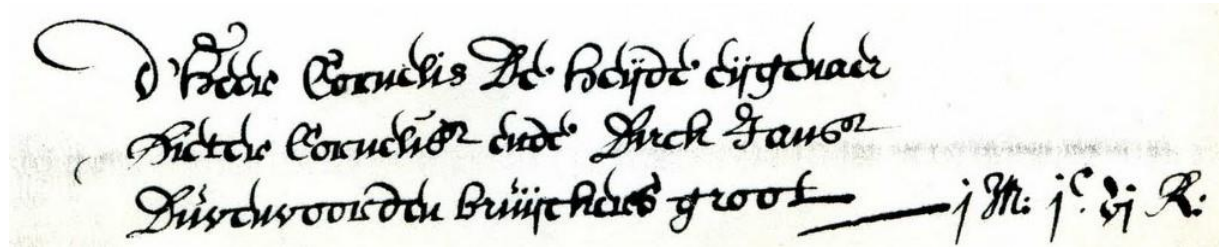 D'heer Cornelis De heijde eijgenaer
Pieter Cornelisz ende Dirck Jansz
Duvenvoorden bruijckers groot j M: jC vj R: